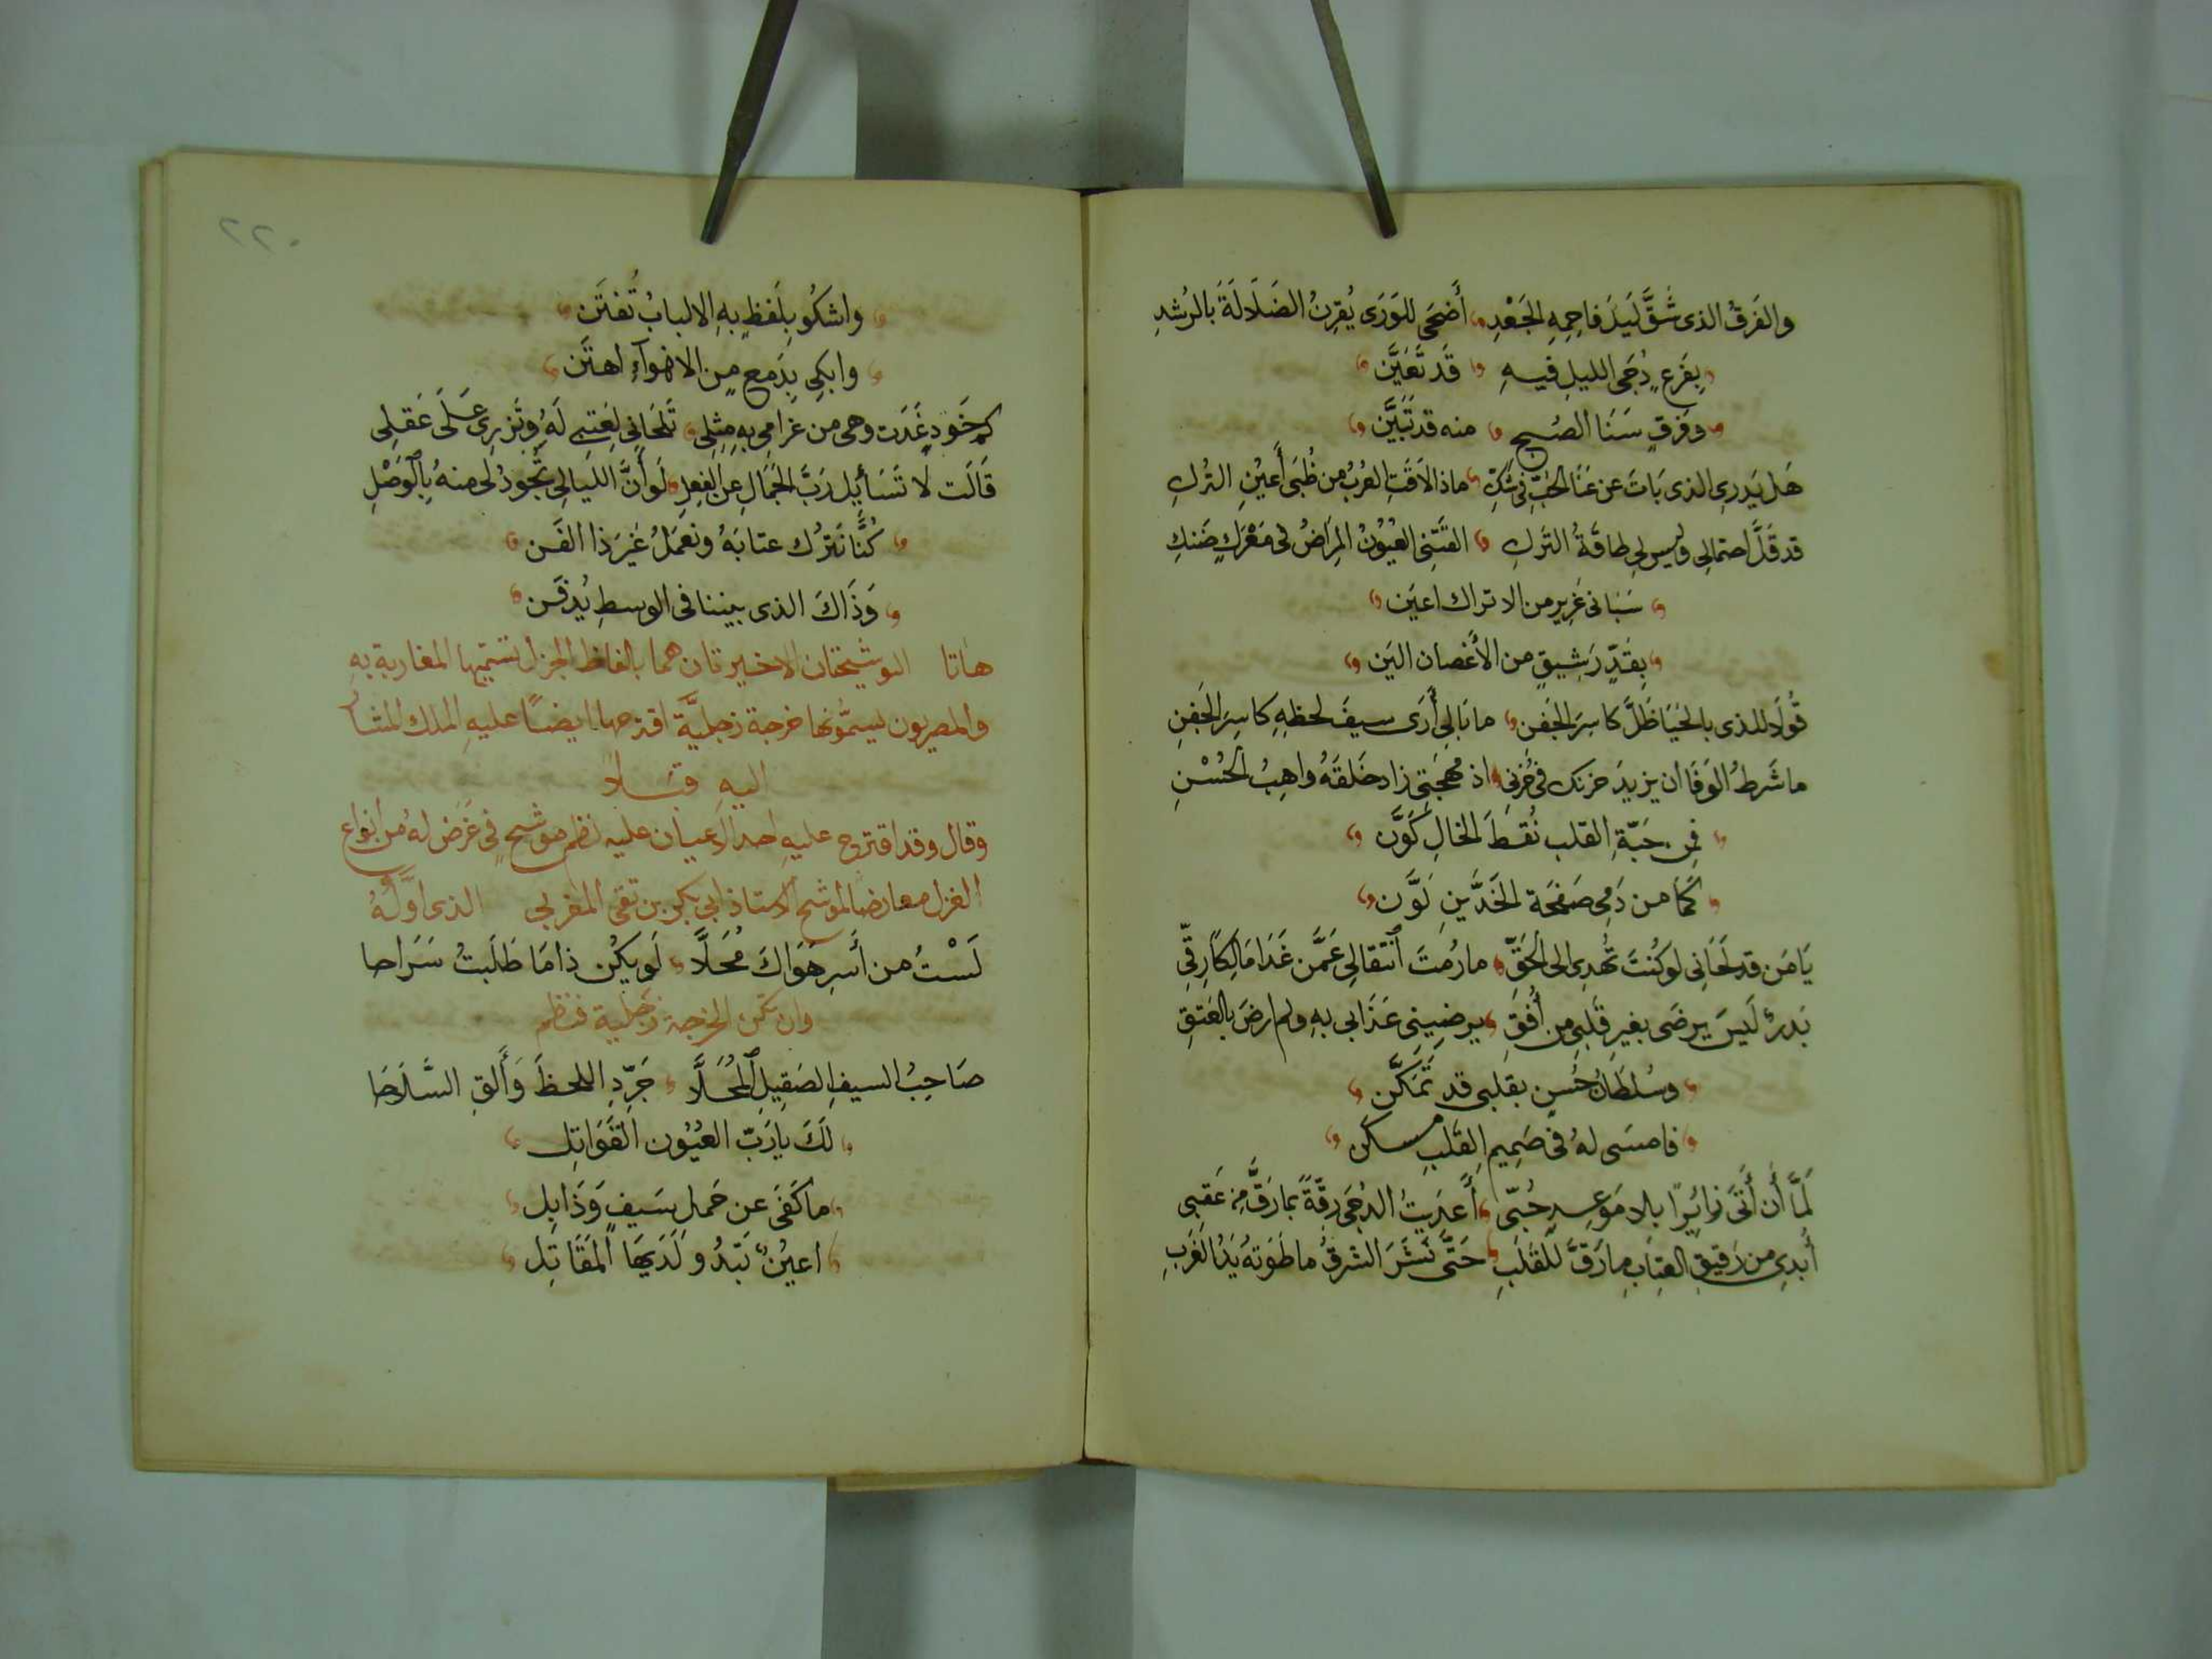 والفَرقُ الذى شَقَّ لَيلَ فاحِمِهِ الجَعْدِ أَضحَى للوَرَى يُقرِنُ الضَلَالَةَ بالرُشدِ
بِفَرعٍ دُجَى الليلِ فيهِ قَد تَعَيَّن
وفَرقٍ سَنَا الصُبحِ منه قد تَبَيَّن
هَل يَدرِى الذى بَاتَ عن عَنَا الحُبِّ فى شَكِّ ماذا لاقَتِ العُربُ من ظُبَى أَعيُنِ التُركِ
قد قَلَّ احتمالى وليس لى طاقَةُ التَركِ القَتنِى العُيُونُ المِرَاضُ فى مَعْرَكٍ ضَنكِ
سَبَانى غَرِير من الاتراك اعيَن
بِقَدٍّ رَشِيقٍ من الأَغصان اليَن
قُولَا للذى بالحَيَا ظَلَّ كاسِرَ الجَفنِ ما بَالِى أَرَى سيفَ لحظِهِ كاسِرَ الجَفنِ
ما شَرطُ الوَفَا ان يزيدَ حزنك فى حُزنى اذ مُهجَتِى زاد خَلقَهُ واهِبُ الحُسْنِ
فِى حَبَّةِ القلب نُقطَ الخالِ كَوَّن
كَما من دَمِى صَفحَة الخَدَّينِ لَوَّن
يَا مَن قد لَحَانِى لو كُنتَ تُهدِى الى الحَقِّ ما رُمتَ انتقالِى عَمَّن غَدَا مَالِكًا رِقِّى
بَدرٌ لَيسَ يرضَى بغيرِ قَلبِى مِن أُفُقِ يرضِينِى عَذَابى بهِ ولم ارضَ بالعَتقِ
وسُلطَانُ حُسنٍ بقلبى قد تَمَكَّن
فامسَى لهُ فى صَمِيمِ القَلبِ مسكن
لَمَّا أن أَتَى زائرًا بلا مَوعِدٍ حُبِّى أَعدَيتُ الدجَى رِقَّةً بما رَقَّ من عَتبِى
أُبدِى من دَقيقِ العِتَابِ ما رَقَّ للقَلبِ حَتَّى نَشَرَ الشرقُ ما طَوَتهُ يَدُ الغَربِ
٢٢٠
واشكُو بِلَفظٍ بهِ الالبابُ تُفتَن
وابكى بِدَمعٍ مِن الانوآءِ اهتَن
كم خَودٍ غَدَت وهى من غرامى بِهِ مِثلى تَلحَانِى لِعَتبِى لَهُ وتُزرِى عَلَى عَقلِى
قَالَت لا تَسَأيل رَبَّ الجَمَالِ عن الفِعلِ لَو أَنَّ الليالى تَجُودُ لى منهُ بِالوَصْلِ
كُنَّا نَترُك عتابَهُ ونعمَلُ غَيرَ ذا الفَن
وَذَاكَ الذى بيننا فى الوسطِ يُدفَن
هاتا التوشيحتان الاخيرتان هما بالفاظ الجزل تسميها المغاربة به
والمصريون يسمّونها خرجة زجليَّة اقترحها ايضًا عليهِ الملك المشار
اليهِ فقال
وقال وقد اقترح عليهِ احد الاعيان عليه نظم موشح فى غرض لهُ من انواع
الغزل معارضا لموشح الاستاذ ابى بكر بن تقى المغربى الذى اوّلهُ
لَسْتُ من أَسرِ هَوَاكَ مُخَلَّا لَو يكُن ذا مَا طَلَبتُ سَرَاحا
وان تكن الخرجة زجلية فنظم
صَاحِبُ السيفِ الصَقِيلِ المُحَلَّا جَرِّدِ اللحظَ وَأَلقِ السَّلَاحَا
لَكَ يا رَبّ العُيُون القَوَاتِل
ما كَفَى عن حَملِ سَيفٍ وَذَابِل
اعيُنٌ تَبدُو لَدَيهَا المَقَاتِل